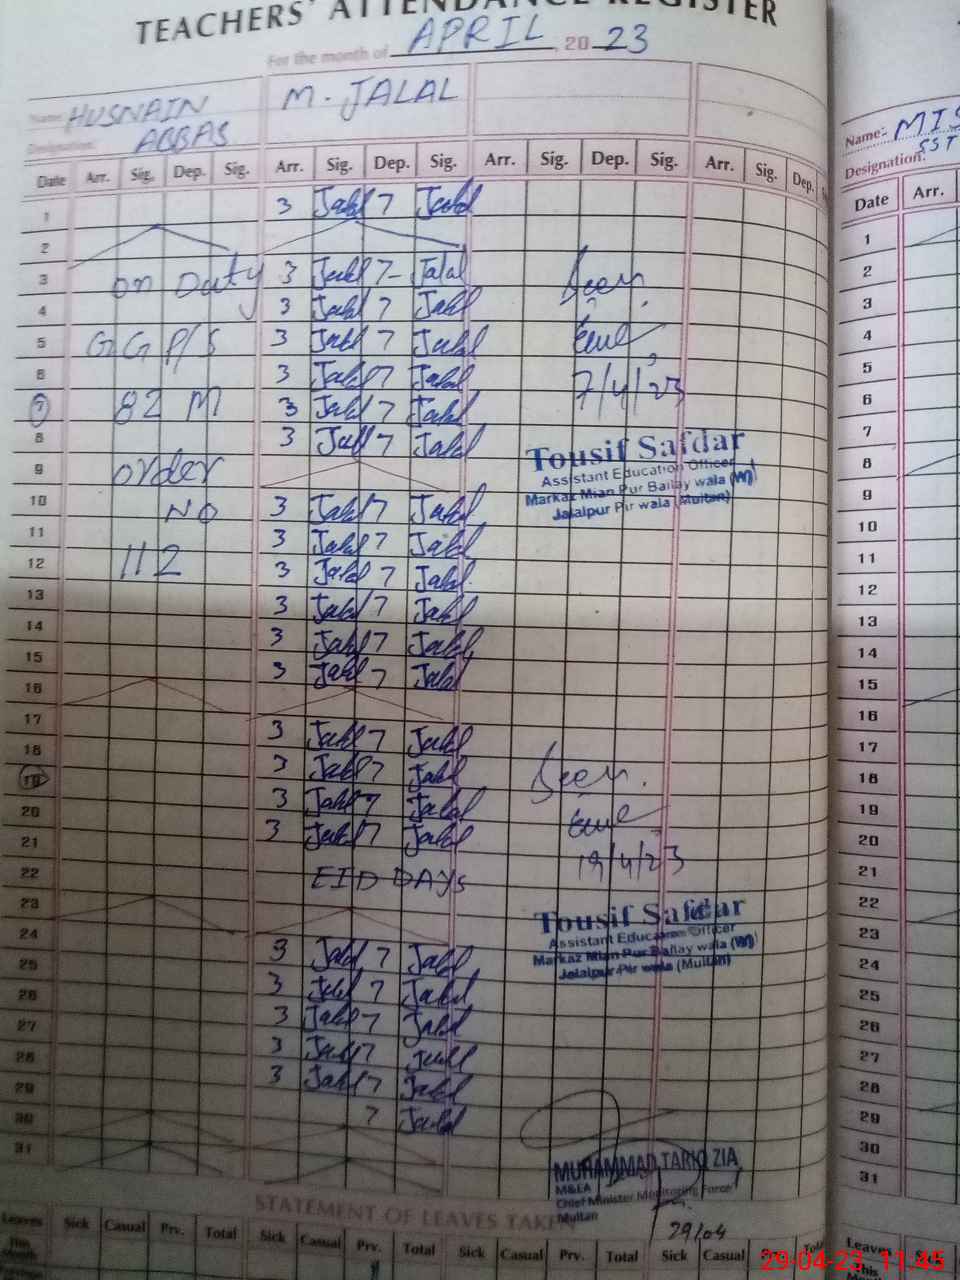 TEACHERS' ATTENDANCE REGISTER
For the month of APRIL, 2023
Name HUSNAIN M. JALAL
Designation: ABBAS
Date Arr. Sig. Dep. Sig. Arr. Sig. Dep. Sig. Arr. Sig. Dep. Sig. Arr. Sig. Dep.
1 3 Jalal 7 Jalal
2
3 on Duty 3 Jalal 7 Jalal Seen.
4 3 Jalal 7 Jalal
5 GG P/S 3 Jalal 7 Jalal
6 3 Jalal 7 Jalal 7/4/23
7 82 M 3 Jalal 7 Jalal
8 3 Jalal 7 Jalal Tousif Safdar
Assistant Education Officer
9 order Markaz Mian Pur Bailay wala (M)
Jalalpur Pir wala (Multan)
10 NO 3 Jalal 7 Jalal
11 3 Jalal 7 Jalal
12 112 3 Jalal 7 Jalal
13 3 Jalal 7 Jalal
14 3 Jalal 7 Jalal
15 3 Jalal 7 Jalal
16
17 3 Jalal 7 Jalal
18 3 Jalal 7 Jalal Seen.
19 3 Jalal 7 Jalal
20 3 Jalal 7 Jalal
21 19/4/23
22 EID DAYS
23 Tousif Safdar
Assistant Education Officer
24 Markaz Mian Pur Bailay wala (M)
Jalalpur Pir wala (Multan)
25 3 Jalal 7 Jalal
26 3 Jalal 7 Jalal
27 3 Jalal 7 Jalal
28 3 Jalal 7 Jalal
29 3 Jalal 7 Jalal
30 7 Jalal
31
MUHAMMAD TARIQ ZIA
M&EA
Chief Minister Monitoring Force
Multan
29/04
STATEMENT OF LEAVES TAKEN
Leaves Sick Casual Prv. Total Sick Casual Prv. Total Sick Casual Prv. Total Sick Casual Prv. Total
This Month
Name:- MIS
Designation: SST
Date Arr.
1
2
3
4
5
6
7
8
9
10
11
12
13
14
15
16
17
18
19
20
21
22
23
24
25
26
27
28
29
30
31
Leaves
This
29-04-23 11:45